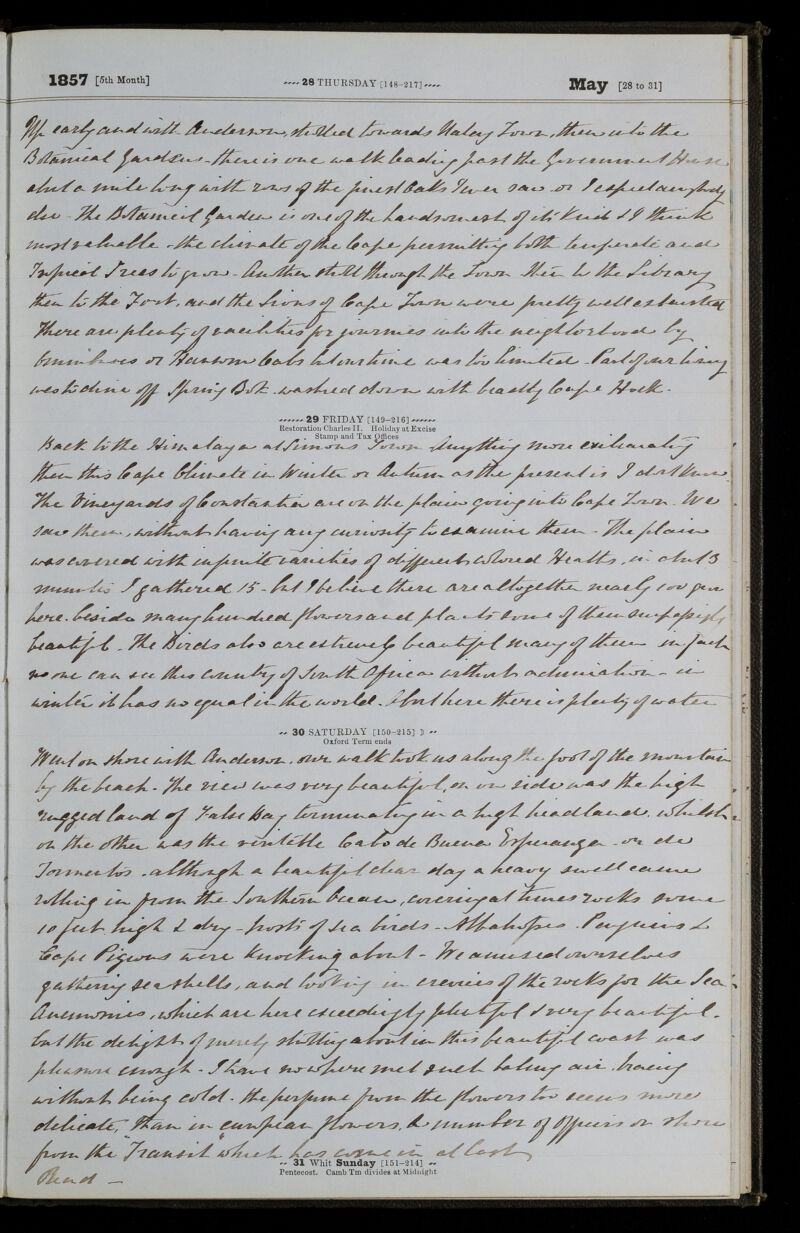 1857 [5th Month] 28 THURSDAY [148-217] May [28 to 31]
Up early and with Anderson, strolled towards Town, then into the
Botanical Gardens - there is one walk leading past the Government House
about a mile long with rows of the finest Oaks I ever saw or I expect anybody
else - The Botanical Garden is one of the handsomest of its Kind & I think
most valuable - the climate of the Cape permitting both temperate and
Tropical Trees to grow - Another stroll through the Town then to the Library
then to the Fort, and the Lions of Cape Town were pretty well exhausted
There are plenty of facilities for journies into the neighborhood by
Omnibuses or Hansom Cabs but our time was too limited - Part of our
was to dine off Spring Bok - washed down with beastly Cape Hock -
29 FRIDAY [149-216]
Restoration Charles II. Holiday at Excise
Stamp and Tax Offices
Back to the Himalaya at Simons Town - Anything more exilarating
than this Cape Climate in Winter or Autumn as the present is I dont know
The Vineyards of Constantia are on the plain going into Cape Town - We
saw them, without having any curiosity to examine them - The plain
was covered with infinite varieties of different colored Heaths, in abut 3
minutes I gathered 15 - but I believe there are altogether nearly 100
here - beside many hundred flowers and plants some of them surpassingly
beautiful - The Birds also are extremely beautiful many of them - in fact
no one can see this country of South Africa without admiration - in
winter it has no equal in the world - but here there is plenty of water
30 SATURDAY [150-215] ☽
Oxford Term ends
Went on shore with Anderson. our walk took us along the foot of the mountain
by the beach - The view was very beautiful, on one side was the high
rugged land of False Bay terminating in a high headland, whilst
on the other was the veritable Cabo de Buena Esperanza - or de
Tormentos - although a beautiful clear day a heavy swell came
rolling in from the Southern Ocean, covering at times rocks some
10 feet high & dry - of sea birds - Albatrosses - Penguins &
Cape Pigeons were Knocking about - We amused ourselves
gathering sea shells, and looking in crevices of the rocks for the Sea
Anemonies, which are here exceedingly plentiful & very beautiful -
but the delight of merely strolling about in this beautiful coast was
pleasure enough - I have nowhere met such balmy air. bracing
without being cold - the perfume from the flowers too seems more
delicate, than in european flowers, A number of officers on shore
from the "Transit" which has come in at last
31 Whit Sunday [151-214]
Pentecost. Camb Tm divides at Midnight
Read -